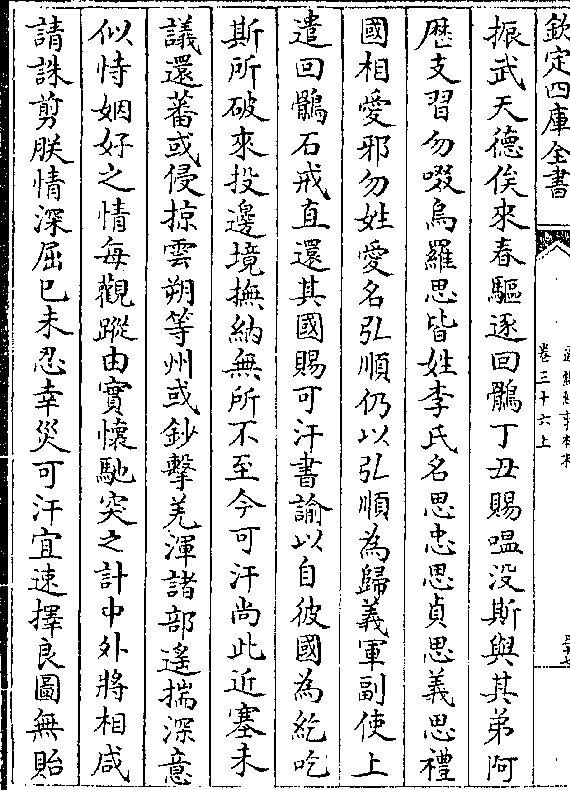 欽定四庫全書
卷三十六上
振武天德俟來春驅逐回鶻丁丑賜嗢没斯與其弟阿
歴支習勿啜烏羅思皆姓李氏名思忠思貞思義思禮
國相愛邪勿姓愛名弘順仍以弘順為歸義軍副使上
遣回鶻石戒直還其國賜可汗書諭以自彼國為紇吃
斯所破來投邊境撫納無所不至今可汗尚此近塞未
議還蕃或侵掠雲朔等州或鈔擊羌渾諸部遙揣深意
似恃姻好之情每觀蹤由實懷馳突之計中外將相咸
請誅剪朕情深屈已未忍幸災可汗宜速擇良圖無貽